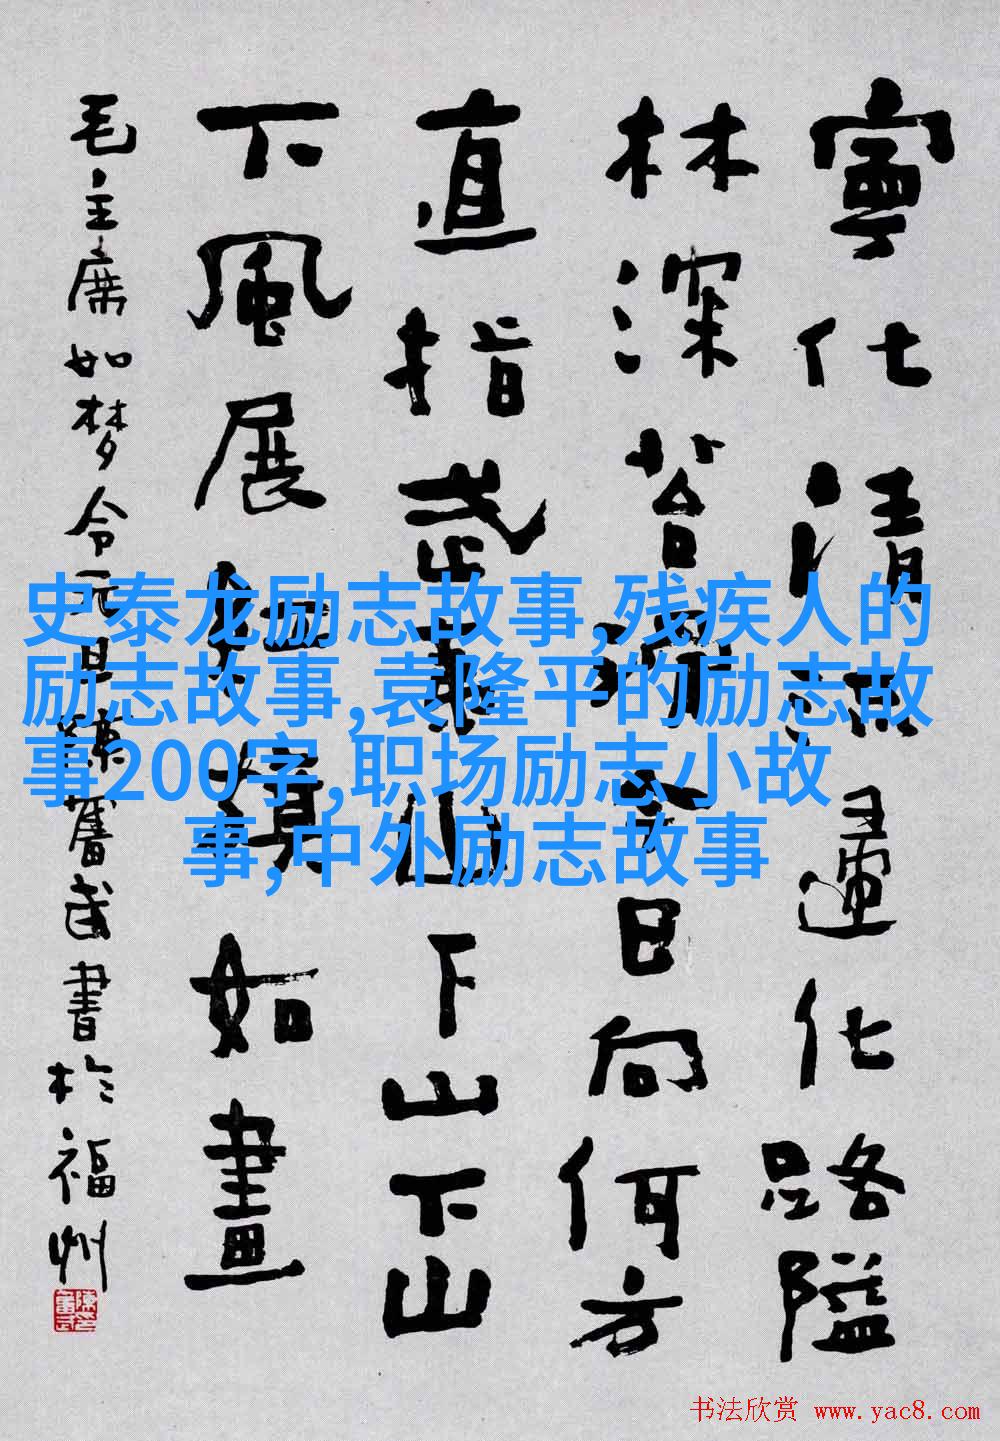 寧化清流歸化路隘
林深苔滑今日向何方
直指武夷山下山下山
下風展紅旗如畫
毛主席如梦令元旦陳奮武書於福州
史泰龙励志故事,残疾人的
励志故事,袁隆平的励志故
事200字,职场励志小故
事,中外励志故事
书法欣赏 www.yac8.com